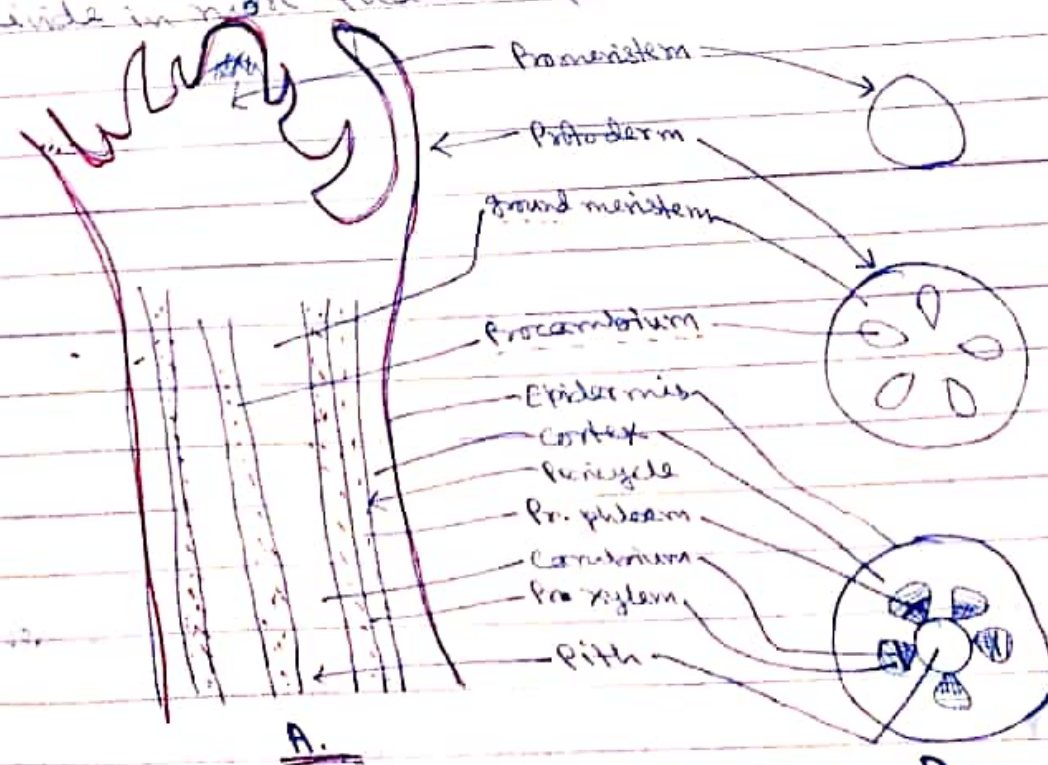 in
Promeristem
Protoderm
ground meristem
Procambium
Epidermis
Cortex
Pericycle
Pr. phloem
Cambium
Pro xylem
Pith
A.